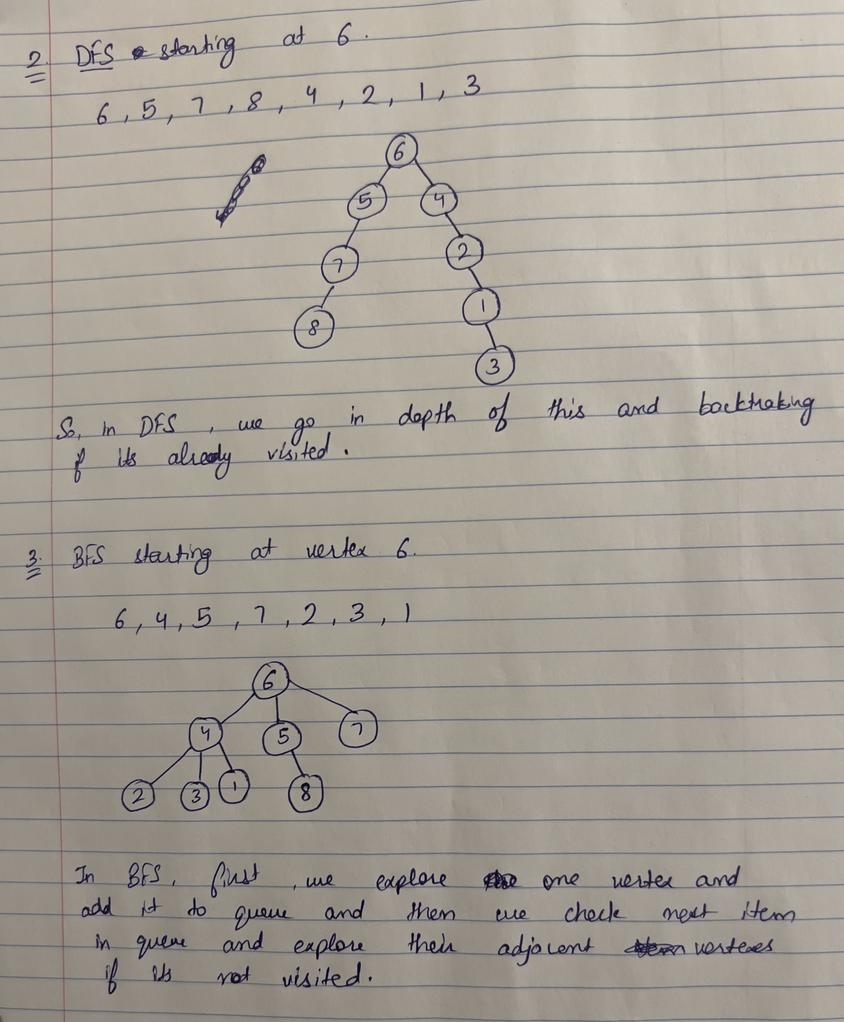 2. DFS starting at 6.
6, 5, 7, 8, 4, 2, 1, 3
6
5 4
7 2
8 1
3
So, in DFS, we go in depth of this and backtraking
if its already visited.
3. BFS starting at vertex 6.
6, 4, 5, 7, 2, 3, 1
6
4 5 7
2 3 1 8
In BFS, first, we explore one vertex and
add it to queue and then we check next item
in queue and explore their adjacent vertexes
if its not visited.